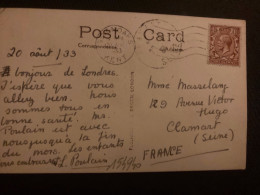 Post Card
20 août/33
Bonjour de Londres
J'espère que vous
allez bien, nous
sommes tous en
bonne santé, Ms.
Poulain est avec
nous jusqu'à la fin
du mois, les enfants
L. Poulain
Mme Masselany
129 Avenue Victor
Hugo
Clamart
(Seine)
FRANCE